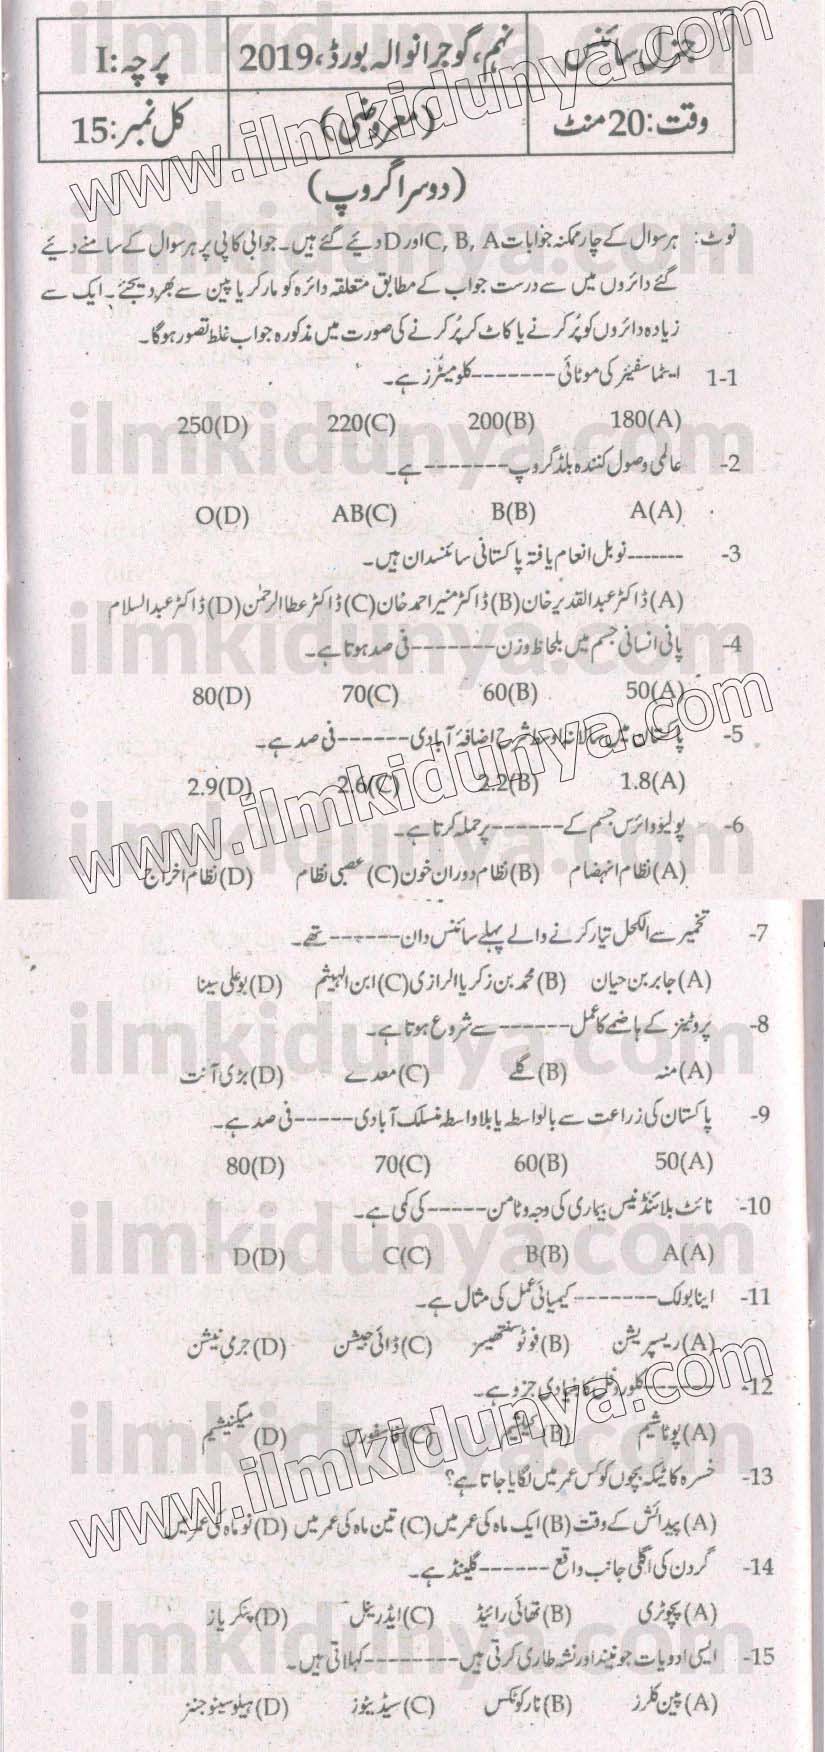 جنرل سائنس نہم، گوجرانوالہ بورڈ، 2019 پرچہ: I
وقت: 20 منٹ (معروضی) کل نمبر: 15
(دوسرا گروپ)
نوٹ: ہر سوال کے چار ممکنہ جوابات C, B, A اور D دیئے گئے ہیں۔ جوابی کاپی پر ہر سوال کے سامنے دیئے
گئے دائروں میں سے درست جواب کے مطابق متعلقہ دائرہ کو مارکر یا پین سے بھر دیجئے۔ ایک سے
زیادہ دائروں کو پُر کرنے یا کاٹ کر پُر کرنے کی صورت میں مذکورہ جواب غلط تصور ہوگا۔
1-1 ایٹماسفیئر کی موٹائی ------- کلومیٹرز ہے۔
(A)180 (B)200 (C)220 (D)250
-2 عالمی وصول کنندہ بلڈ گروپ ------- ہے۔
(A)A (B)B (C)AB (D)O
-3 ------- نوبل انعام یافتہ پاکستانی سائنسدان ہیں۔
(A) ڈاکٹر عبدالقدیر خان (B) ڈاکٹر منیر احمد خان (C) ڈاکٹر عطاالرحمٰن (D) ڈاکٹر عبدالسلام
-4 پانی انسانی جسم میں بلحاظ وزن ------- فی صد ہوتا ہے۔
(A)50 (B)60 (C)70 (D)80
-5 پاکستان میں سالانہ اوسط شرح اضافۂ آبادی ------ فی صد ہے۔
(A)1.8 (B)2.2 (C)2.6 (D)2.9
-6 پولیو وائرس جسم کے ------ پر حملہ کرتا ہے۔
(A) نظام انہضام (B) نظام دوران خون (C) عصبی نظام (D) نظام اخراج
-7 تخمیر سے الکحل تیار کرنے والے پہلے سائنس دان ------ تھے۔
(A) جابر بن حیان (B) محمد بن زکریا الرازی (C) ابن الہیثم (D) بو علی سینا
-8 پروٹینز کے ہاضمے کا عمل ------ سے شروع ہوتا ہے۔
(A) منہ (B) گلے (C) معدے (D) بڑی آنت
-9 پاکستان کی زراعت سے بالواسطہ یا بلاواسطہ منسلک آبادی ----- فی صد ہے۔
(A)50 (B)60 (C)70 (D)80
-10 نائٹ بلائنڈنیس بیماری کی وجہ وٹامن ----- کی کمی ہے۔
(A)A (B)B (C)C (D)D
-11 اینابولک ------- کیمیائی عمل کی مثال ہے۔
(A) ریسپریشن (B) فوٹوسنتھیسز (C) ڈائی جیشن (D) جرمی نیشن
-12 ------- کلوروفل کا بنیادی جزو ہے۔
(A) پوٹاشیم (B) کیلشیم (C) فاسفورس (D) میگنیشیم
-13 خسرہ کا ٹیکہ بچوں کو کس عمر میں لگایا جاتا ہے؟
(A) پیدائش کے وقت (B) ایک ماہ کی عمر میں (C) تین ماہ کی عمر میں (D) نو ماہ کی عمر میں
-14 گردن کی اگلی جانب واقع ------ گلینڈ ہے۔
(A) پچوٹری (B) تھائی رائیڈ (C) ایڈرینل (D) پنکریاز
-15 ایسی ادویات جو نیند اور نشہ طاری کرتی ہیں -------- کہلاتی ہیں۔
(A) پین کلرز (B) نارکوٹکس (C) سیڈیٹوز (D) ہیلوسینوجنز
www.ilmkidunya.com
ilmkidunya.com